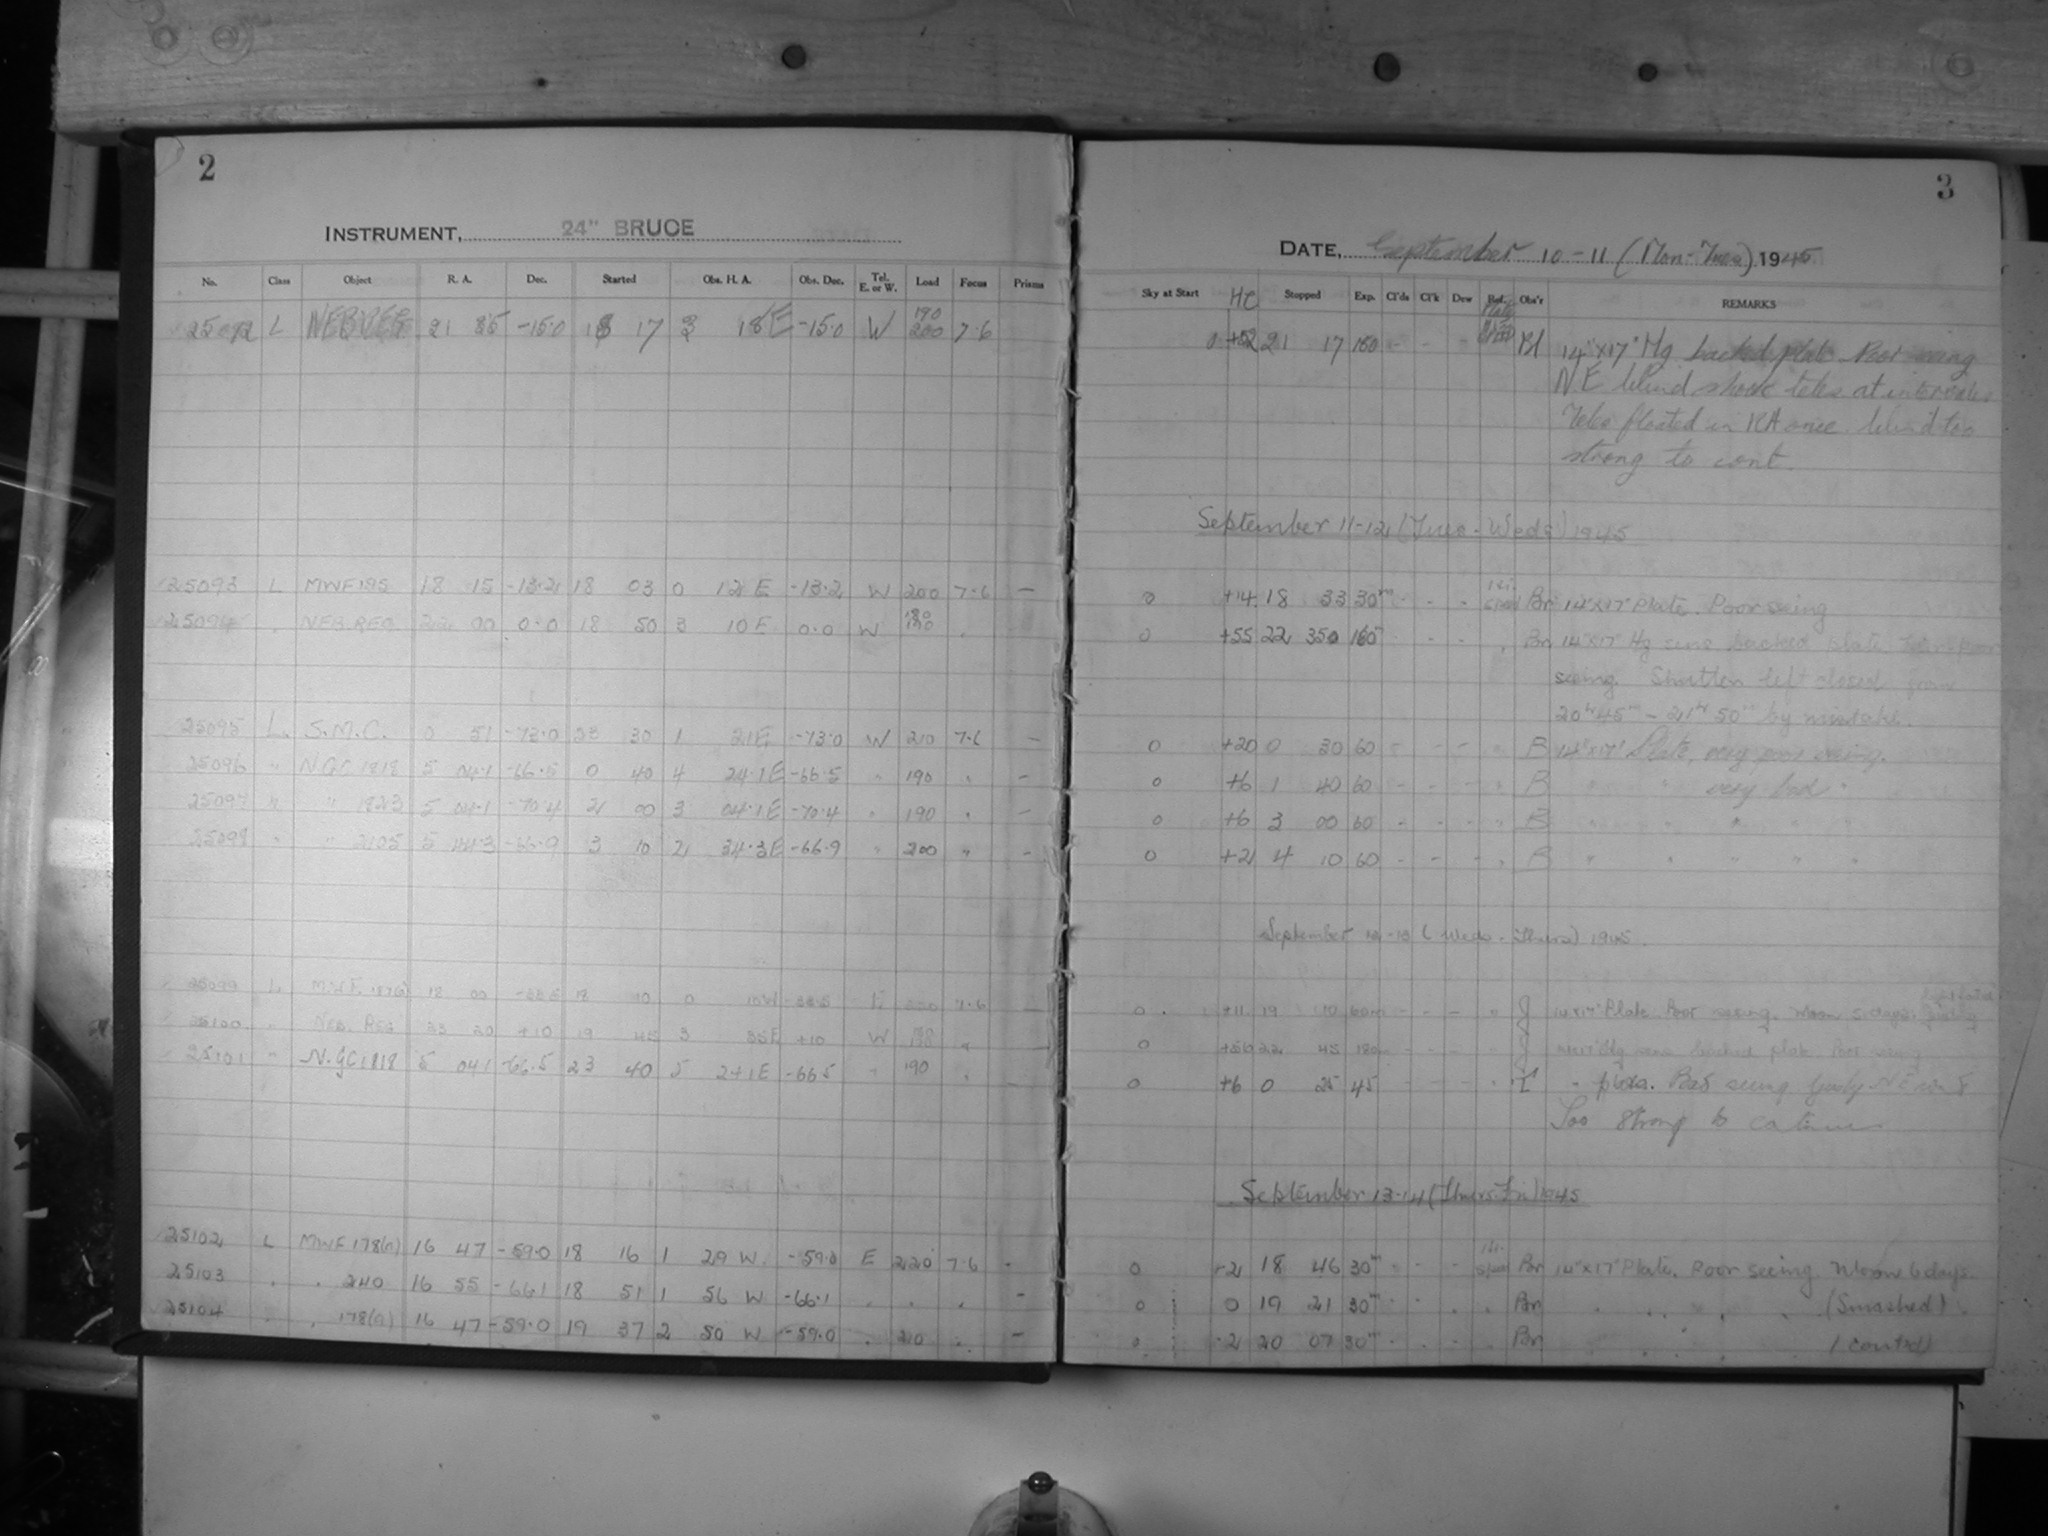 2
INSTRUMENT, 24" BRUCE
No. Class Object R. A. Dec. Started Obs. H. A. Obs. Dec. Tel. E. or W. Load Focus Prisms
25092 L NEB REG 21 35 -15.0 18 17 3 18 E -15.0 W 190 200 7.6
25093 L MWF 195 18 15 -13.2 18 03 0 12 E -13.2 W 200 7.6 —
25094 " NEB. REG. 22 00 0.0 18 50 3 10 E 0.0 W 180 190 "
25095 L S.M.C. 0 51 -73.0 23 30 1 21 E -73.0 W 210 7.6 —
25096 " N.G.C. 1818 5 04.1 -66.5 0 40 4 24.1 E -66.5 " 190 " —
25097 " " 1823 5 04.1 -70.4 2 00 3 04.1 E -70.4 " 190 " —
25098 " " 2105 5 44.3 -66.9 3 10 2 34.3 E -66.9 " 200 " —
25099 L M.W.F. 187(a) 18 00 18 10 0 10 W E 7.6 —
25100 " NEB. REG 23 20 +10 19 45 3 35 E +10 W "
25101 " N.G.C 1818 5 041 -66.5 23 40 5 241 E -66.5 " 190 " —
25102 L MWF 178(a) 16 47 -59.0 18 16 1 29 W. -59.0 E 220 7.6 -
25103 " " 240 16 55 -66.1 18 51 1 56 W -66.1 " " " —
25104 " " 178(a) 16 47 -59.0 19 37 2 50 W -59.0 " 210 " —
3
DATE, September 10-11 (Mon-Tues) 1945
Sky at Start HC Stopped Exp. Cl'ds Cl'k Dew Obs'r REMARKS
0 +52 21 17 180 - - - Bl 14"x17" Hg backed plate Poor seeing
NE wind shook teles at intervals
Teles floated in RA once. Wind too
strong to cont.
September 11-12 (Tues-Weds) 1945
0 +14 18 33 30m - - - Br 14"x17" Plate. Poor seeing
0 +55 22 350 160 - - - " Br 14"x17" Hg sens backed plate
seeing. Shutter left closed from
20h 45m – 21h 50m by mistake.
0 +20 0 30 60 - - - " B 14"x17" Plate, very poor seeing.
0 +6 1 40 60 - - - " B " " very bad "
0 +6 3 00 60 - - - " B " " " " "
0 +2 4 10 60 - - - " B " " " " "
September 12-13 (Weds-Thurs) 1945.
0 +11 19 10 60m - - - " J 14x17" Plate Poor seeing. Moon 5 days.
0 +56 22 45 180m - - - " J 14x17" Hg sens backed plate Poor seeing
0 +6 0 25 45 - - - " " plate. Bad seeing gusty NE wind
Too strong to continue
September 13-14 (Thurs-Fri) 1945
0 -2 18 46 30m - - - Br 14"x17" Plate. Poor seeing Moon 6 days.
0 0 19 21 30m - - - " Br " " " " (Smashed)
0 -2 20 07 30m - - - " Br " " " (contd)